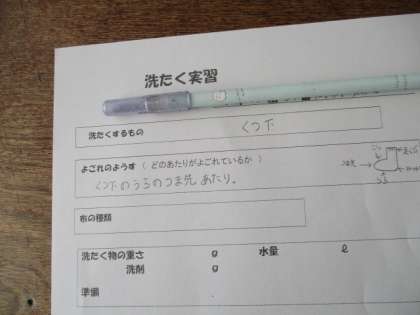 洗たく実習
洗たくするもの くつ下
よごれのようす ( どのあたりがよごれているか )
くつ下のうらのつま先あたり。
布の種類
洗たく物の重さ g 水量 ℓ
洗剤 g
準備